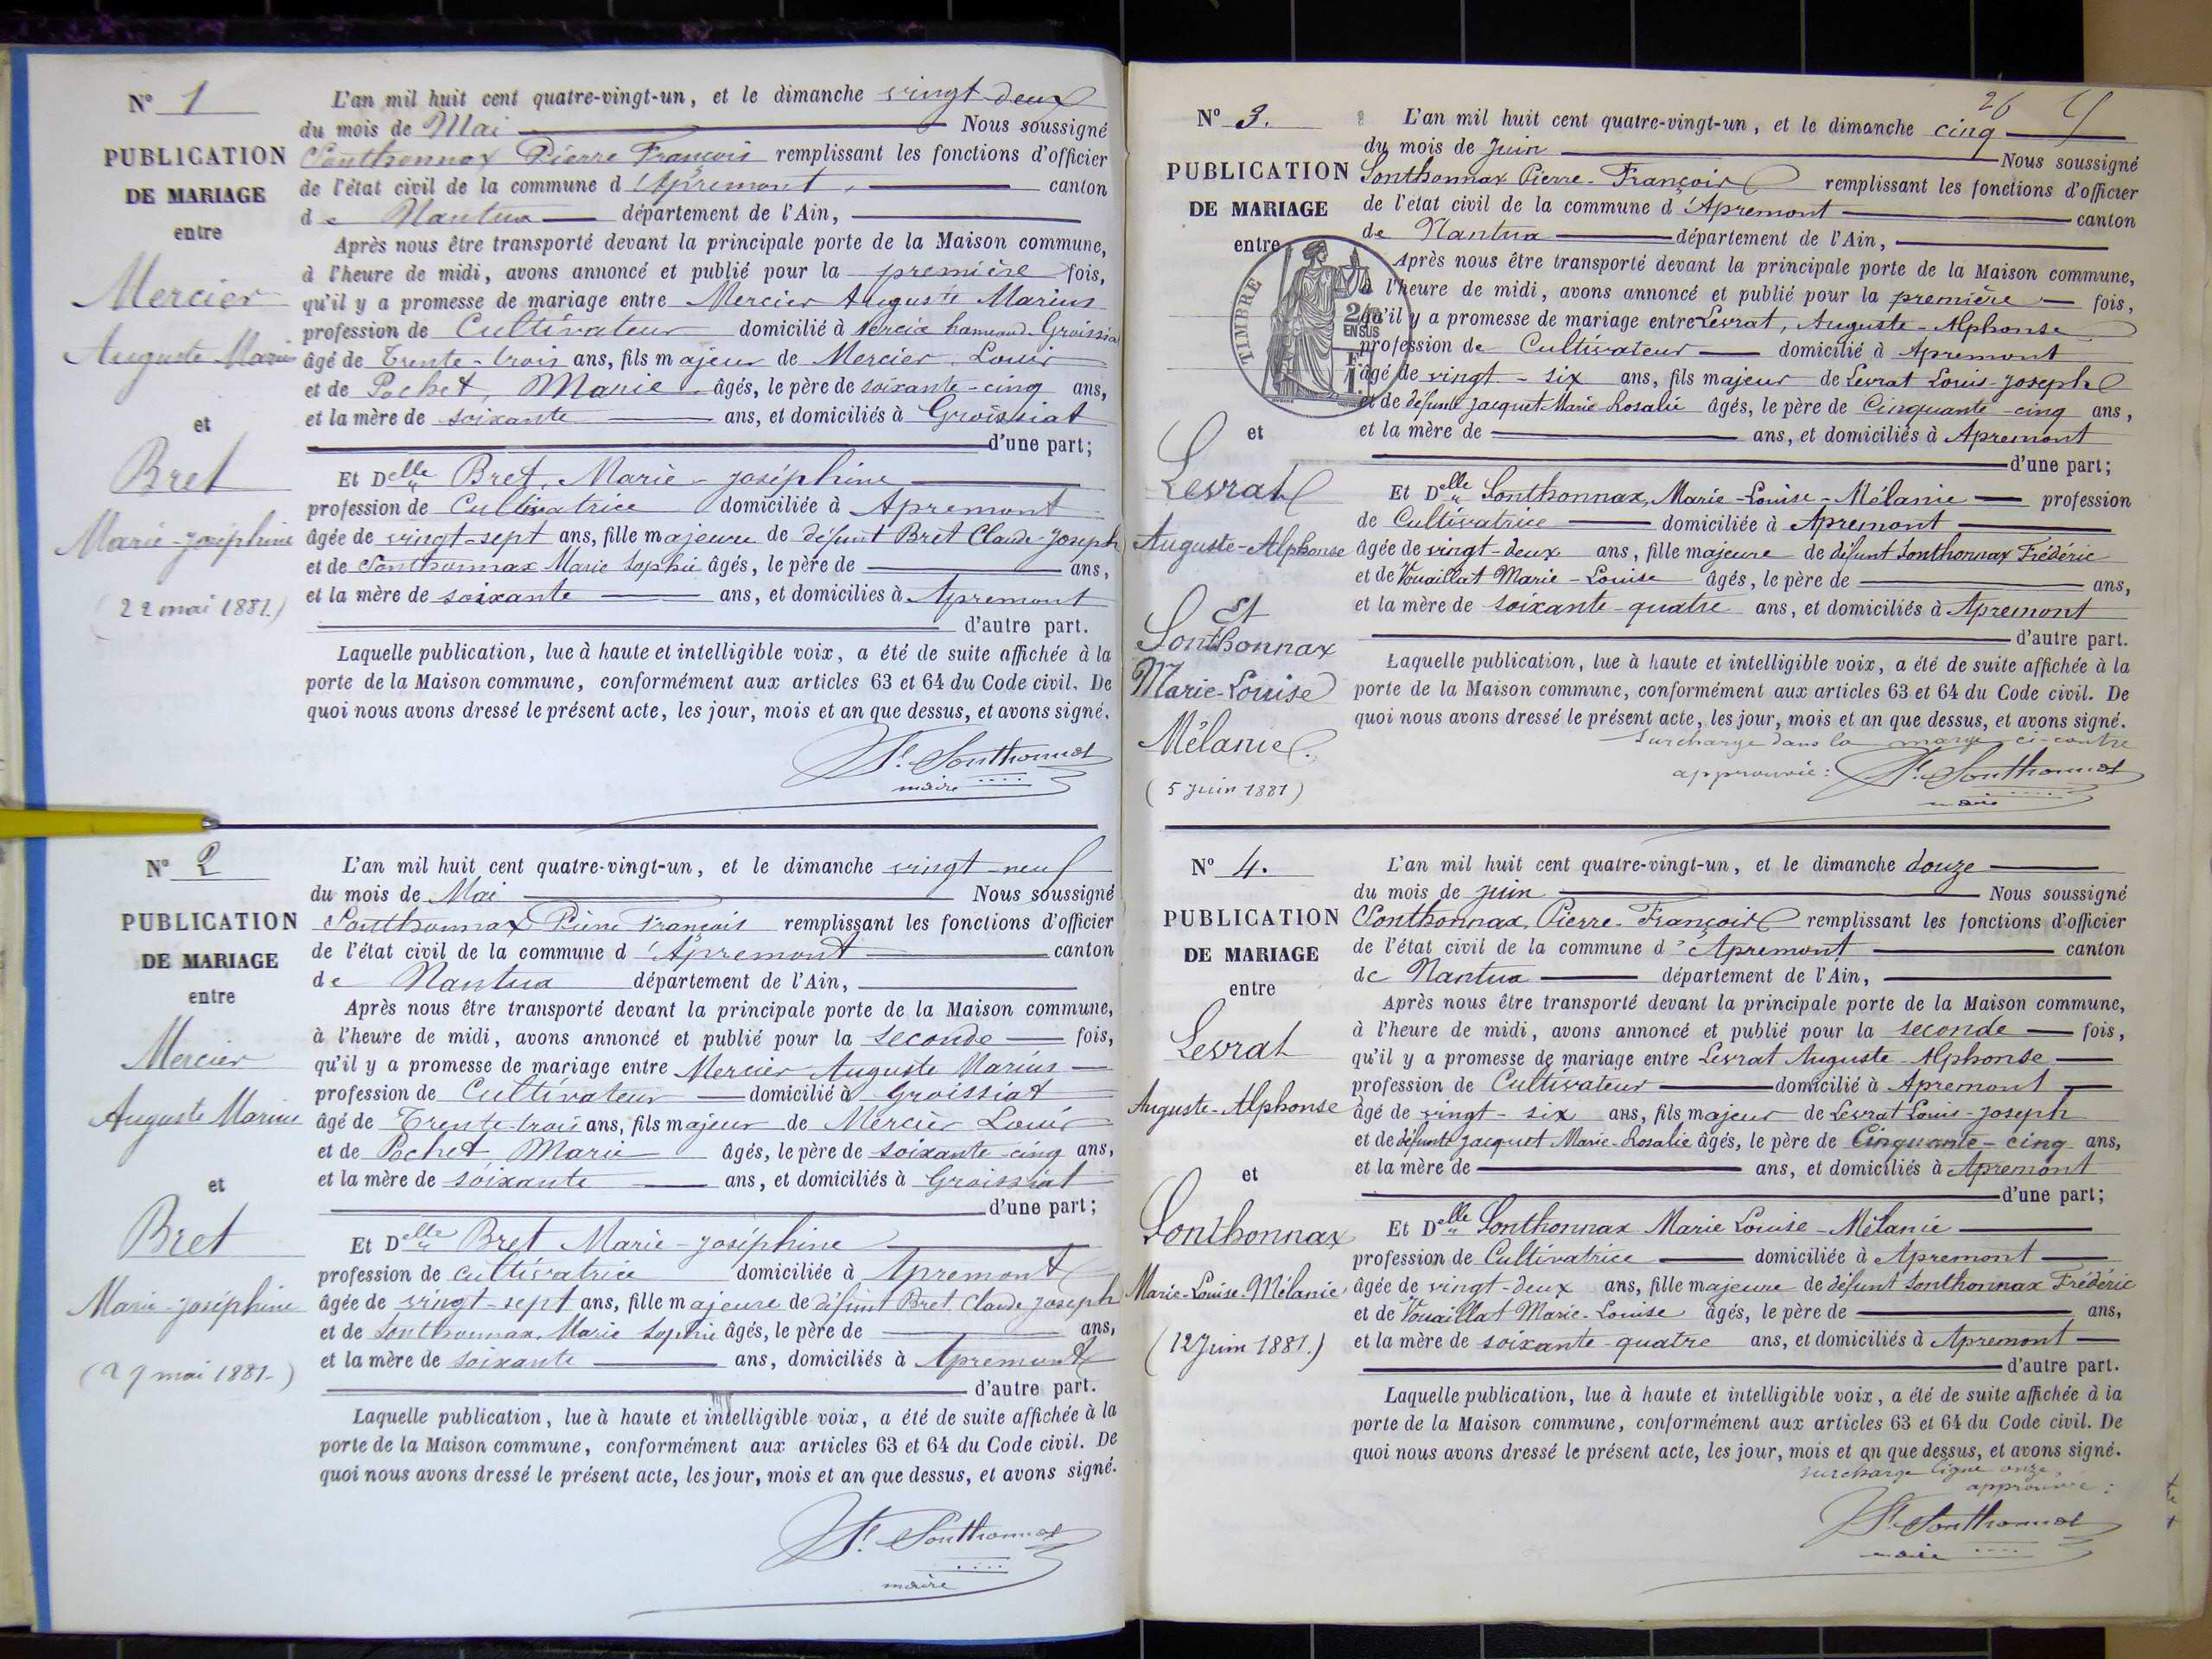 N° 1
PUBLICATION
DE MARIAGE
entre
Mercier
Auguste Marius
et
Bret
Marie-Joséphine
(22 mai 1881.)
L'an mil huit cent quatre-vingt-un, et le dimanche vingt-deux
du mois de Mai Nous soussigné
Sonthonnax Pierre François remplissant les fonctions d'officier
de l'état civil de la commune d'Apremont, canton
de Nantua département de l'Ain,
Après nous être transporté devant la principale porte de la Maison commune,
à l'heure de midi, avons annoncé et publié pour la première fois,
qu'il y a promesse de mariage entre Mercier Auguste Marius
profession de Cultivateur domicilié à hameau Groissiat
âgé de Trente-trois ans, fils majeur de Mercier, Louis
et de Pochet, Marie âgés, le père de soixante-cinq ans,
et la mère de soixante ans, et domiciliés à Groissiat
d'une part;
Et Delle Bret, Marie-Joséphine
profession de Cultivatrice domiciliée à Apremont
âgée de vingt-sept ans, fille majeure de défunt Bret Claude-Joseph
et de Sonthonnax Marie Sophie âgés, le père de ans,
et la mère de soixante ans, et domiciliés à Apremont
d'autre part.
Laquelle publication, lue à haute et intelligible voix, a été de suite affichée à la
porte de la Maison commune, conformément aux articles 63 et 64 du Code civil. De
quoi nous avons dressé le présent acte, les jour, mois et an que dessus, et avons signé.
Sonthonnax
maire
N° 2
PUBLICATION
DE MARIAGE
entre
Mercier
Auguste Marius
et
Bret
Marie-Joséphine
(29 mai 1881.)
L'an mil huit cent quatre-vingt-un, et le dimanche vingt-neuf
du mois de Mai Nous soussigné
Sonthonnax Pierre François remplissant les fonctions d'officier
de l'état civil de la commune d'Apremont canton
de Nantua département de l'Ain,
Après nous être transporté devant la principale porte de la Maison commune,
à l'heure de midi, avons annoncé et publié pour la seconde fois,
qu'il y a promesse de mariage entre Mercier Auguste Marius
profession de Cultivateur domicilié à Groissiat
âgé de Trente-trois ans, fils majeur de Mercier Louis
et de Pochet Marie âgés, le père de soixante-cinq ans,
et la mère de soixante ans, et domiciliés à Groissiat
d'une part;
Et Delle Bret Marie-Joséphine
profession de cultivatrice domiciliée à Apremont
âgée de vingt-sept ans, fille majeure de défunt Bret Claude Joseph
et de Sonthonnax, Marie Sophie âgés, le père de ans,
et la mère de soixante ans, domiciliés à Apremont
d'autre part.
Laquelle publication, lue à haute et intelligible voix, a été de suite affichée à la
porte de la Maison commune, conformément aux articles 63 et 64 du Code civil. De
quoi nous avons dressé le présent acte, les jour, mois et an que dessus, et avons signé.
Sonthonnax
maire
26
N° 3.
PUBLICATION
DE MARIAGE
entre
TIMBRE
EN SUS
et
Levrat
Auguste-Alphonse
Et
Sonthonnax
Marie-Louise
Mélanie.
(5 Juin 1881)
L'an mil huit cent quatre-vingt-un, et le dimanche cinq
du mois de Juin Nous soussigné
Sonthonnax Pierre-François remplissant les fonctions d'officier
de l'état civil de la commune d'Apremont canton
de Nantua département de l'Ain,
Après nous être transporté devant la principale porte de la Maison commune,
à l'heure de midi, avons annoncé et publié pour la première fois,
qu'il y a promesse de mariage entre Levrat, Auguste-Alphonse
profession de Cultivateur domicilié à Apremont
âgé de vingt-six ans, fils majeur de Levrat Louis-Joseph
et de défunte Jacquet Marie Rosalie âgés, le père de Cinquante-cinq ans,
et la mère de ans, et domiciliés à Apremont
d'une part;
Et Delle Sonthonnax, Marie-Louise-Mélanie profession
de Cultivatrice domiciliée à Apremont
âgée de vingt-deux ans, fille majeure de défunt Sonthonnax Frédéric
et de Vouaillat Marie-Louise âgés, le père de ans,
et la mère de soixante-quatre ans, et domiciliés à Apremont
d'autre part.
Laquelle publication, lue à haute et intelligible voix, a été de suite affichée à la
porte de la Maison commune, conformément aux articles 63 et 64 du Code civil. De
quoi nous avons dressé le présent acte, les jour, mois et an que dessus, et avons signé.
Surcharge dans la marge ci-contre
approuvée: Sonthonnax
maire
N° 4.
PUBLICATION
DE MARIAGE
entre
Levrat
Auguste-Alphonse
et
Sonthonnax
Marie-Louise-Mélanie
(12 Juin 1881.)
L'an mil huit cent quatre-vingt-un, et le dimanche douze
du mois de juin Nous soussigné
Sonthonnax, Pierre-François remplissant les fonctions d'officier
de l'état civil de la commune d'Apremont canton
de Nantua département de l'Ain,
Après nous être transporté devant la principale porte de la Maison commune,
à l'heure de midi, avons annoncé et publié pour la seconde fois,
qu'il y a promesse de mariage entre Levrat Auguste-Alphonse
profession de Cultivateur domicilié à Apremont
âgé de vingt-six ans, fils majeur de Levrat Louis-Joseph
et de défunte Jacquet Marie-Rosalie âgés, le père de Cinquante-cinq ans,
et la mère de ans, et domiciliés à Apremont
d'une part;
Et Delle Sonthonnax Marie Louise-Mélanie
profession de Cultivatrice domiciliée à Apremont
âgée de vingt-deux ans, fille majeure de défunt Sonthonnax Frédéric
et de Vouaillat Marie-Louise âgés, le père de ans,
et la mère de soixante-quatre ans, et domiciliés à Apremont
d'autre part.
Laquelle publication, lue à haute et intelligible voix, a été de suite affichée à la
porte de la Maison commune, conformément aux articles 63 et 64 du Code civil. De
quoi nous avons dressé le présent acte, les jour, mois et an que dessus, et avons signé.
surcharge ligne onze,
approuvée:
Sonthonnax
maire